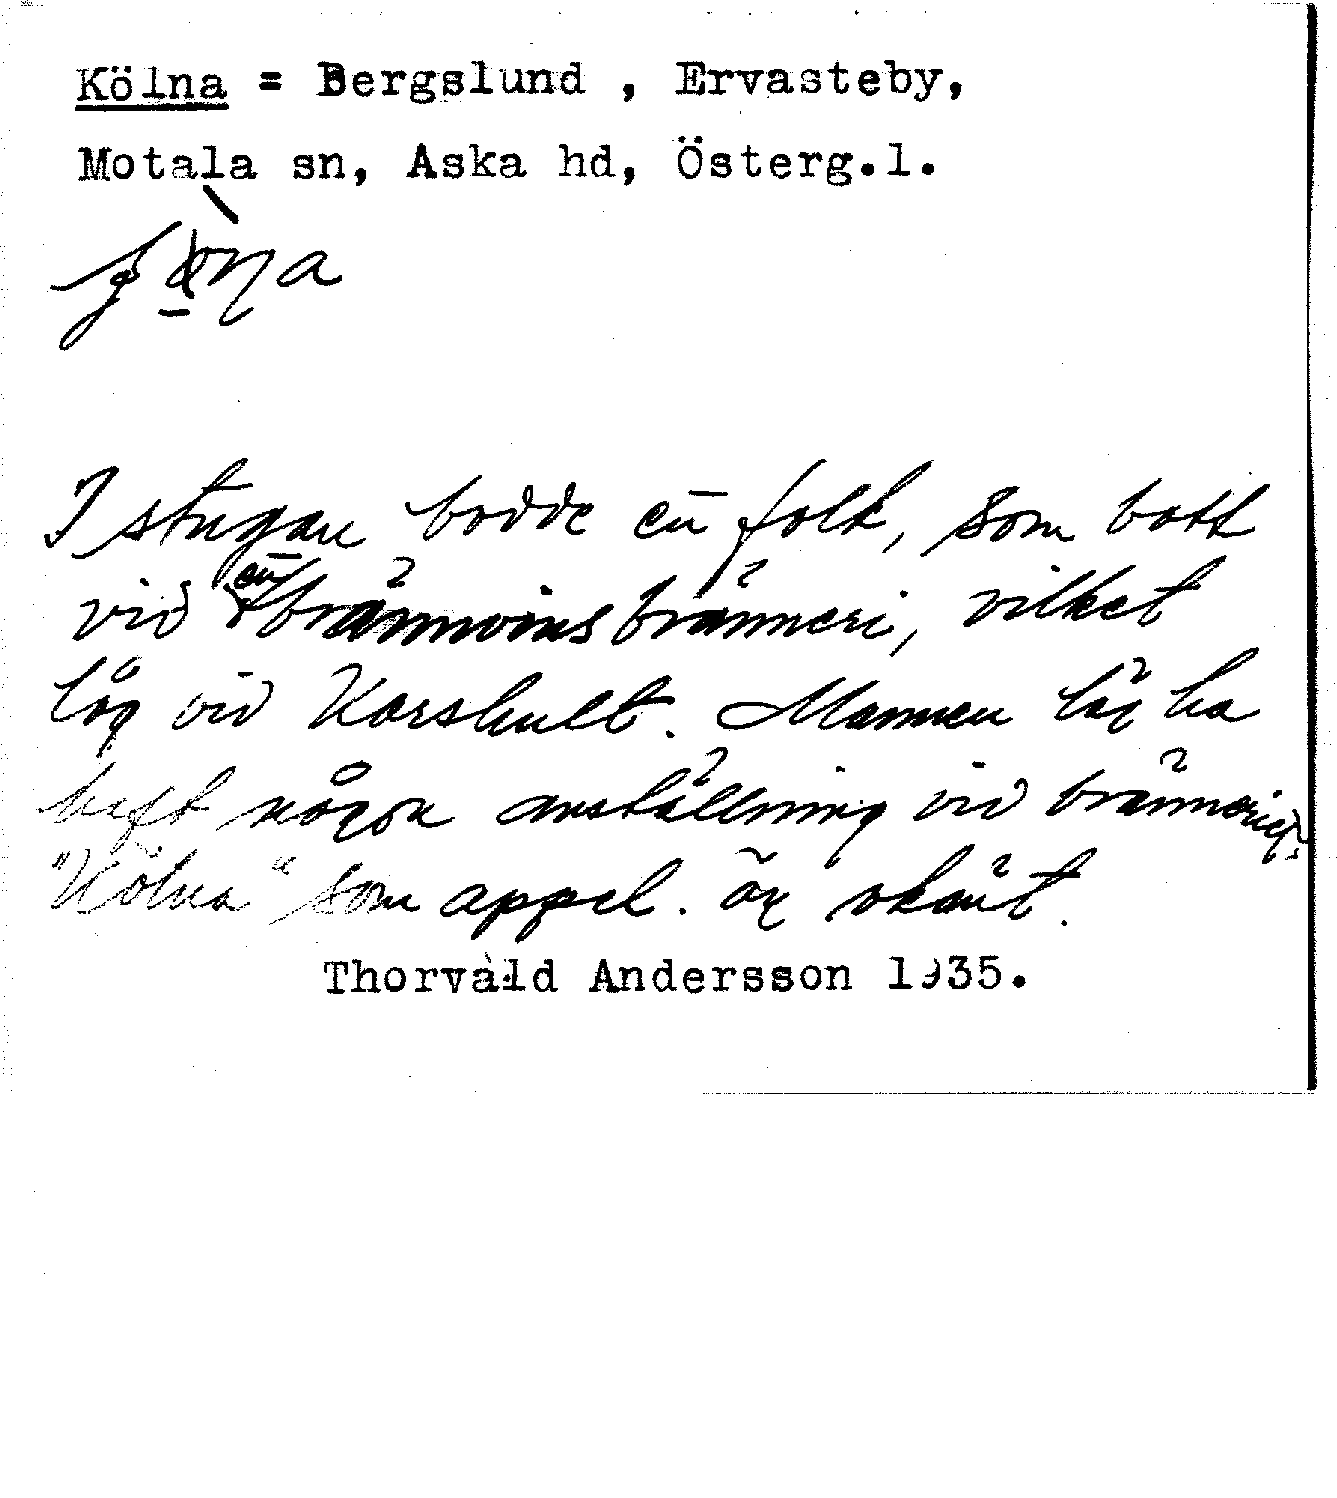 Kölna = Bergslund , Ervasteby,
Motala sn, Aska hd, Österg.l.
I stugan bodde en folk, som bott
vid en brännvinsbränneri, vilket
låg vid Karshult. Mannen lär ha
haft någon anställning vid bränneriet.
"Kölna" som appel. är okänt.
Thorvald Andersson 1935.